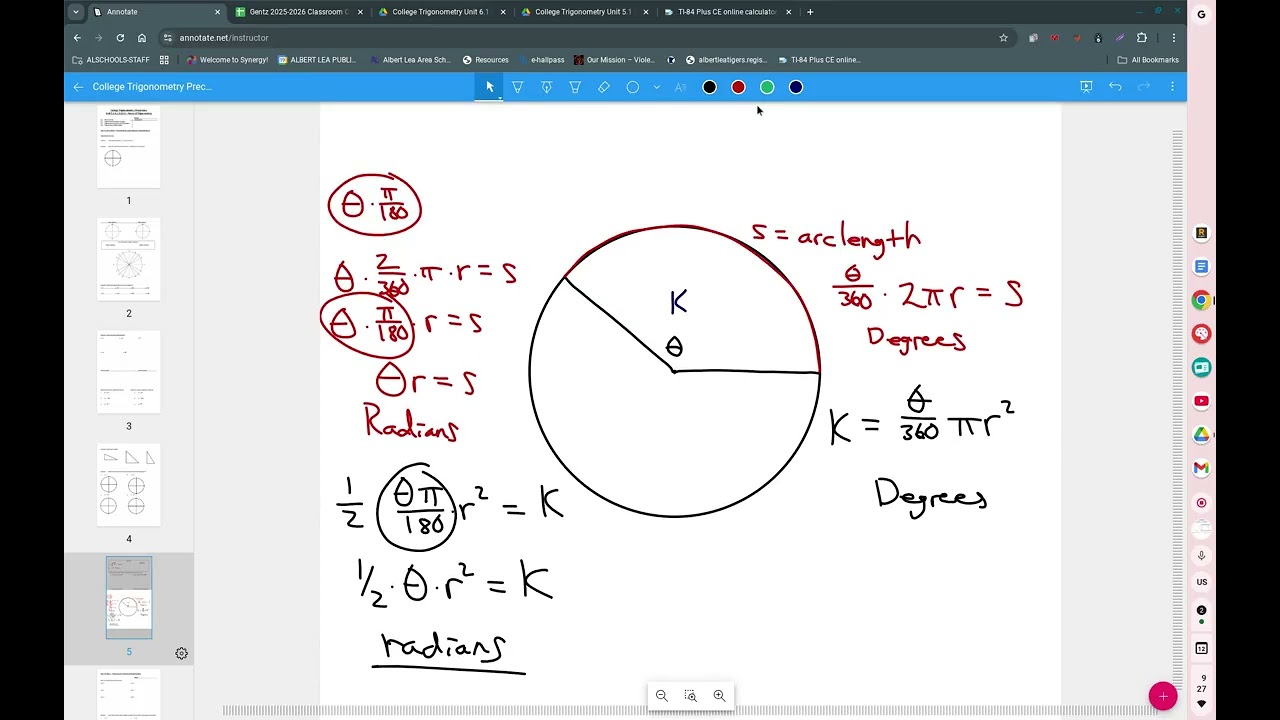 Annotate
Gentz 2025-2026 Classroom C
College Trigonometry Unit 6.1
College Trigonometry Unit 5.1
TI-84 Plus CE online calculator
annotate.net/instructor
ALSCHOOLS-STAFF
Welcome to Synergy!
ALBERT LEA PUBLI...
Albert Lea Area Sch...
Resources
e-hallpass
Our Mission – Viole...
albertleatigers.regis...
TI-84 Plus CE online...
All Bookmarks
College Trigonometry Prec...
1
2
3
4
5
θ · π/180
θ · 2/360 · π · r = S
θ · π/180 · r = S
θ r = S
Radians
1/2 θπ/180 r² = K
1/2 · θ · r² = K
radians
K
θ
S = arc length
θ/360 · 2πr = S
Degrees
K = θ/360 πr²
Degrees
US
2
12
9
27